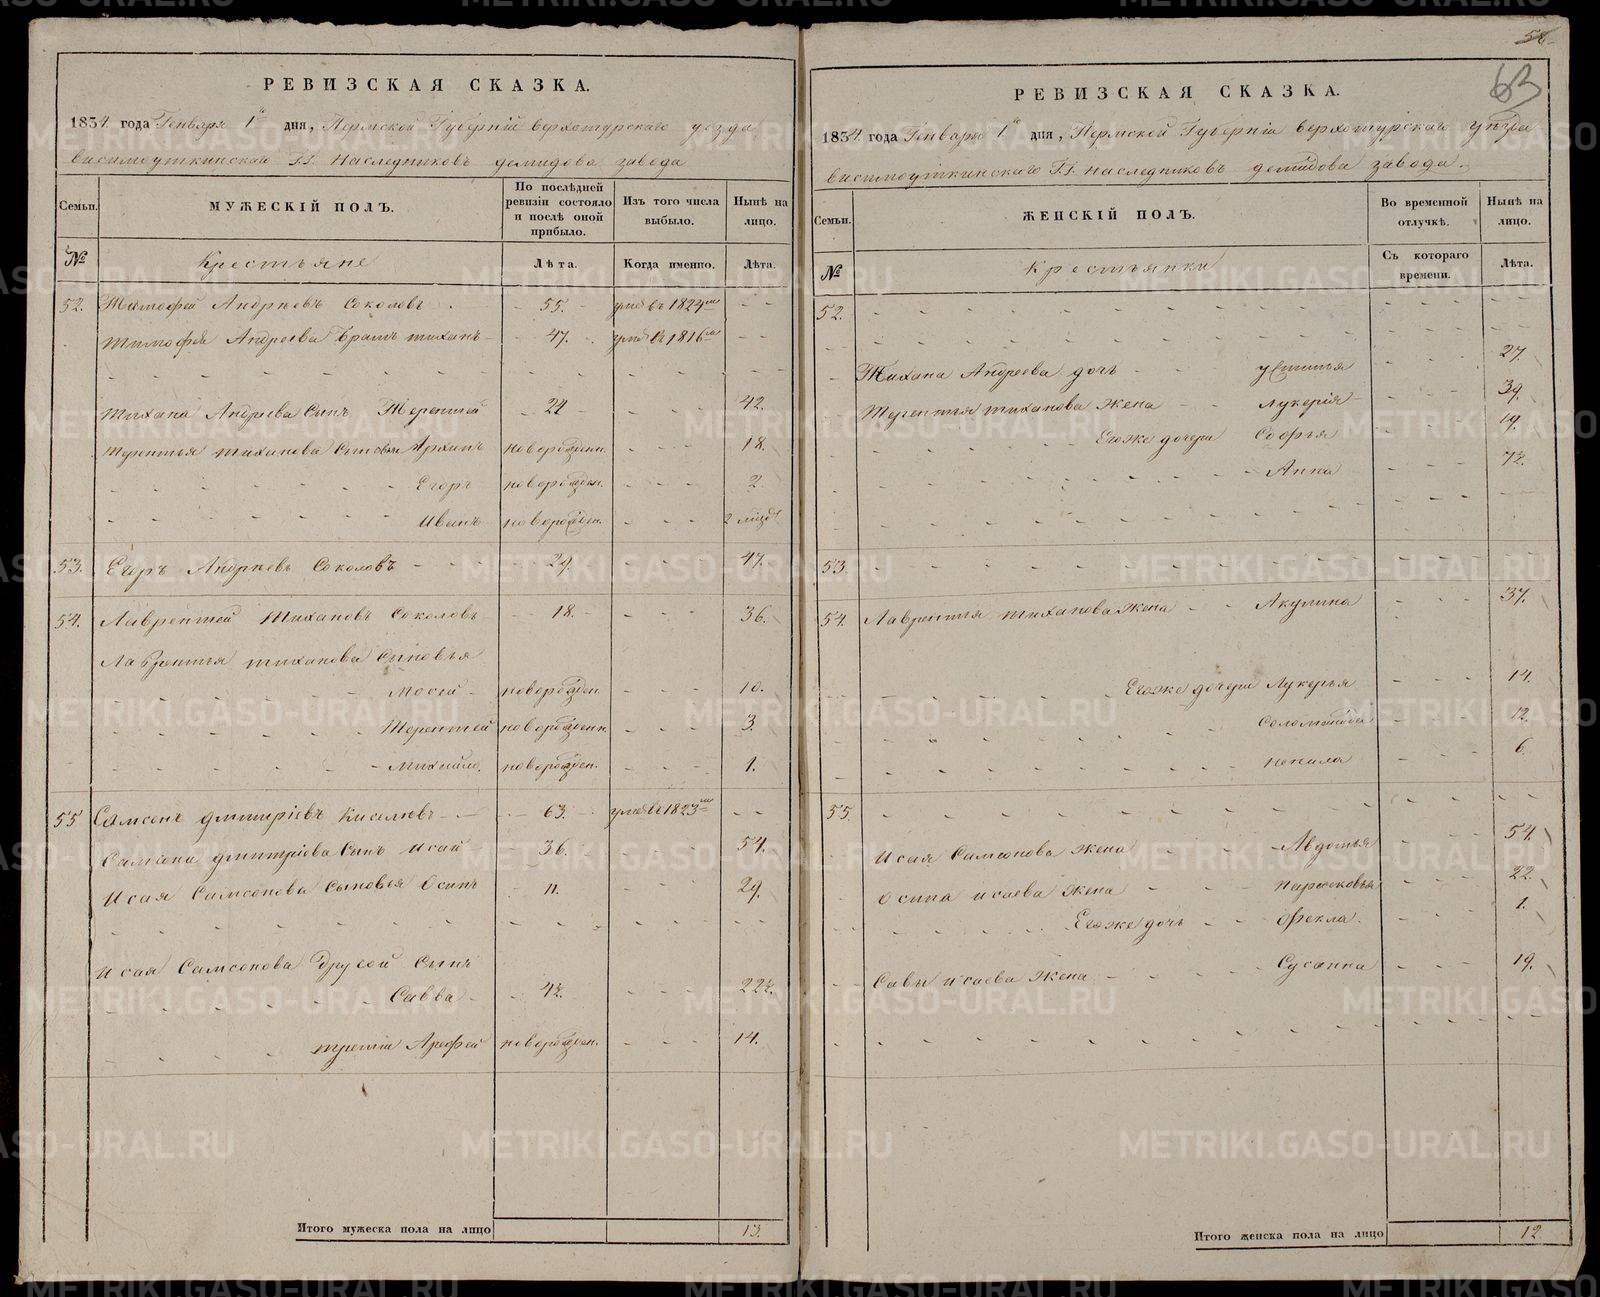 58
63
РЕВИЗСКАЯ СКАЗКА.
1834 года Генваря 1го дня, Пермской Губернiи верхотурскаго уезда
висимоуткинскаго Г.Г. наследниковъ демидова завода
Семьи. МУЖЕСКIЙ ПОЛЪ. По послѣдней ревизiи состояло и послѣ оной прибыло. Изъ того числа выбыло. Нынѣ на лицо.
№ Крестьяне Лѣта. Когда именно. Лѣта.
52. Тимофей Андреевъ Соколовъ 55. умре въ 1824м - -
Тимофея Андреева братъ тиханъ 47. умре в 1816м - -
Тихана Андреева сынъ Терентей 24 - - - 42.
Терентья тиханова сыновья Архипъ новорожден. - - - 18.
Егоръ новорожден. - - - 2.
Иванъ новорожден. - - -
53. Егоръ Андреевъ Соколовъ 29. - - - 47.
54. Лаврентей Тихановъ Соколовъ 18. - - - 36.
Лаврентья тиханова сыновья
Мосей новорожден. - - - 10.
Терентей новорожден. - - - 3.
Михайло. новорожден. - - - 1.
55 Самсонъ дмитрiевъ Киселювъ 63. умре в 1823м - -
Самсона дмитрiева сынъ Исай 36. - - - 54.
Исая Самсонова сыновья Осипъ 11. - - - 29.
Исая Самсонова другой сынъ
Савва 4½. - - - 22½.
третiй Арефей новорожден. - - - 14.
Итого мужеска пола на лицо 13.
РЕВИЗСКАЯ СКАЗКА.
1834 года Генваря 1го дня, Пермской Губернiи верхотурскаго уѣзда
висимоуткинскаго Г.Г. наследниковъ демидова завода.
Семьи. ЖЕНСКIЙ ПОЛЪ. Во временной отлучкѣ. Нынѣ на лицо.
№ Крестьянки Съ котораго времени. Лѣта.
52.
Тихана Андреева дочь устинья - - - 27.
Терентья тиханова жена Лукерiя - - - 39.
Егоже дочери Софья - - - 19.
Анна - - - 7½.
53.
54. Лаврентья тиханова жена Акулина - - - 37.
Егоже дочери Лукерья - - - 14.
Соломонида - - - 12.
Ненила - - - 6
55.
Исая Самсонова жена Авдотья - - - 54.
Осипа исаева жена Парасковья - - - 22.
Егоже дочь Фекла. - - - 1.
Савы исаева жена Сусанна - - - 19.
Итого женска пола на лицо 12
METRIKI.GASO-URAL.RU